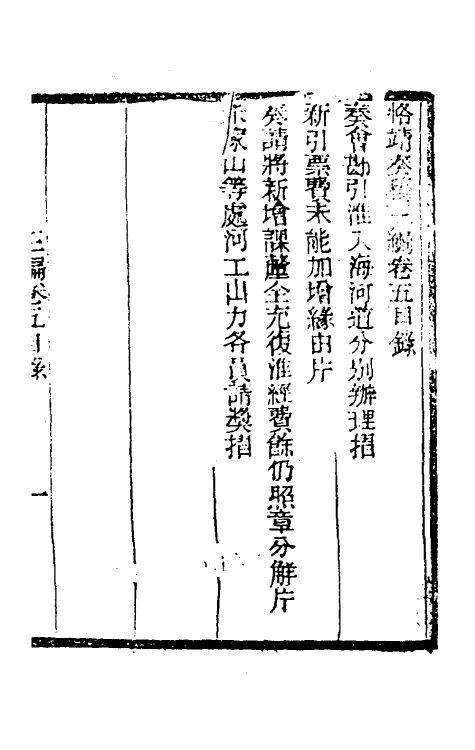 恪靖奏稿三編卷五目錄
奏會勘引淮入海河道分別辦理摺
新引票費未能加增緣由片
奏請將新增課釐全充復淮經費餘仍照章分解片
家山等處河工出力各員請獎摺
三編卷五目錄
一